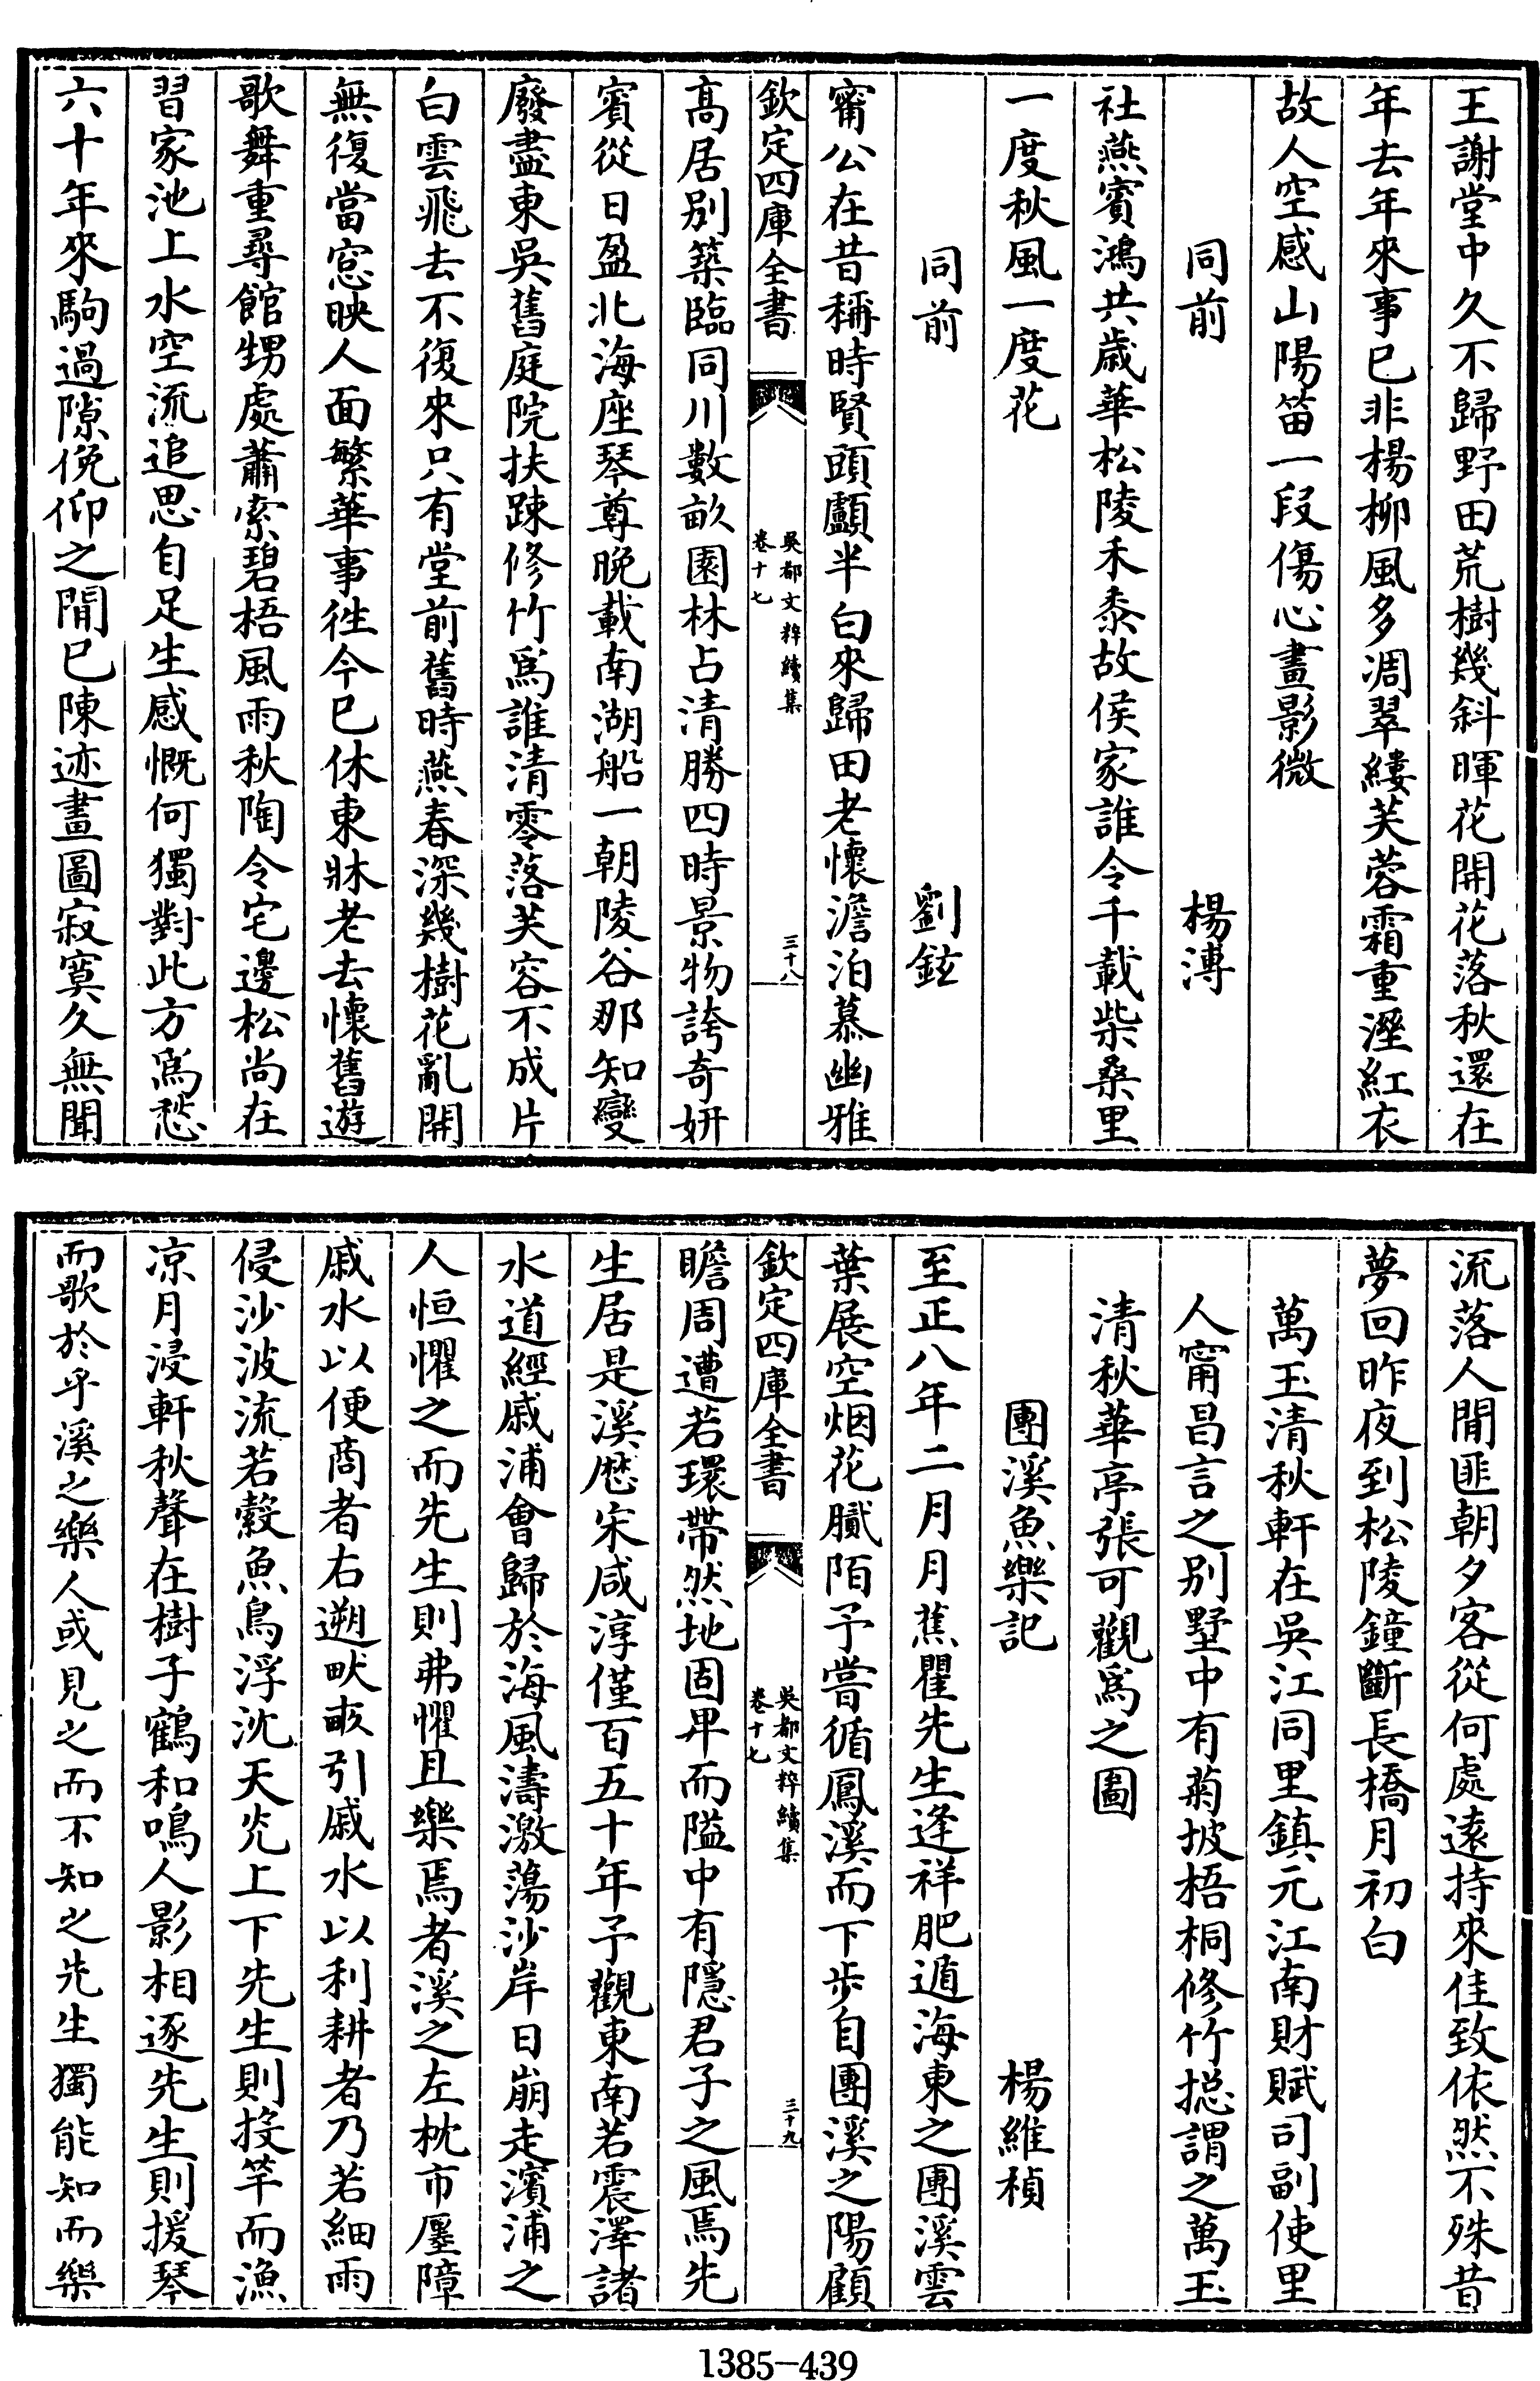 王謝堂中久不歸野田荒樹幾斜暉花開花落秋還在
年去年來事已非楊柳風多凋翠縷芙蓉霜重溼紅衣
故人空感山陽笛一段傷心畫影微
同前 楊溥
社燕賓鴻共歲華松陵禾黍故侯家誰令千載柴桑里
一度秋風一度花
同前 劉鉉
甯公在昔稱時賢頭顱半白來歸田老懷澹泊慕幽雅
欽定四庫全書 吳都文粹續集 卷十七 三十八
高居別築臨同川數畝園林占清勝四時景物誇奇妍
賓從日盈北海座琴尊晚載南湖船一朝陵谷那知變
廢盡東吳舊庭院扶踈修竹爲誰清零落芙容不成片
白雲飛去不復來只有堂前舊時燕春深幾樹花亂開
無復當窓映人面繁華事徃今已休東牀老去懷舊遊
歌舞重尋館甥處蕭索碧梧風雨秋陶令宅邊松尚在
習家池上水空流追思自足生感慨何獨對此方爲愁
六十年來駒過隙俛仰之間已陳迹畫圖寂寞久無聞
流落人間匪朝夕客從何處遠持來佳致依然不殊昔
夢回昨夜到松陵鐘斷長橋月初白
萬玉清秋軒在吳江同里鎮元江南財賦司副使里
人甯昌言之別墅中有菊坡梧桐修竹揔謂之萬玉
清秋華亭張可觀爲之圖
團溪魚樂記 楊維楨
至正八年二月月蕉瞿先生逢祥肥遁海東之團溪雲
葉展空烟花膩陌予嘗循鳳溪而下步自團溪之陽顧
欽定四庫全書 吳都文粹續集 卷十七 三十九
瞻周遭若環帶然地固畀而隘中有隱君子之風焉先
生居是溪歴宋咸淳僅百五十年予觀東南若震澤諸
水道經戚浦會歸於海風濤激蕩沙岸日崩走濱浦之
人恒懼之而先生則弗懼且樂焉者溪之左枕市廛障
戚水以便商者右遡畎畝引戚水以利耕者乃若細雨
侵沙波流若縠魚鳥浮沈天光上下先生則投竿而漁
凉月浸軒秋聲在樹子鶴和鳴人影相逐先生則援琴
而歌於乎溪之樂人或見之而不知之先生獨能知而樂
1385-439